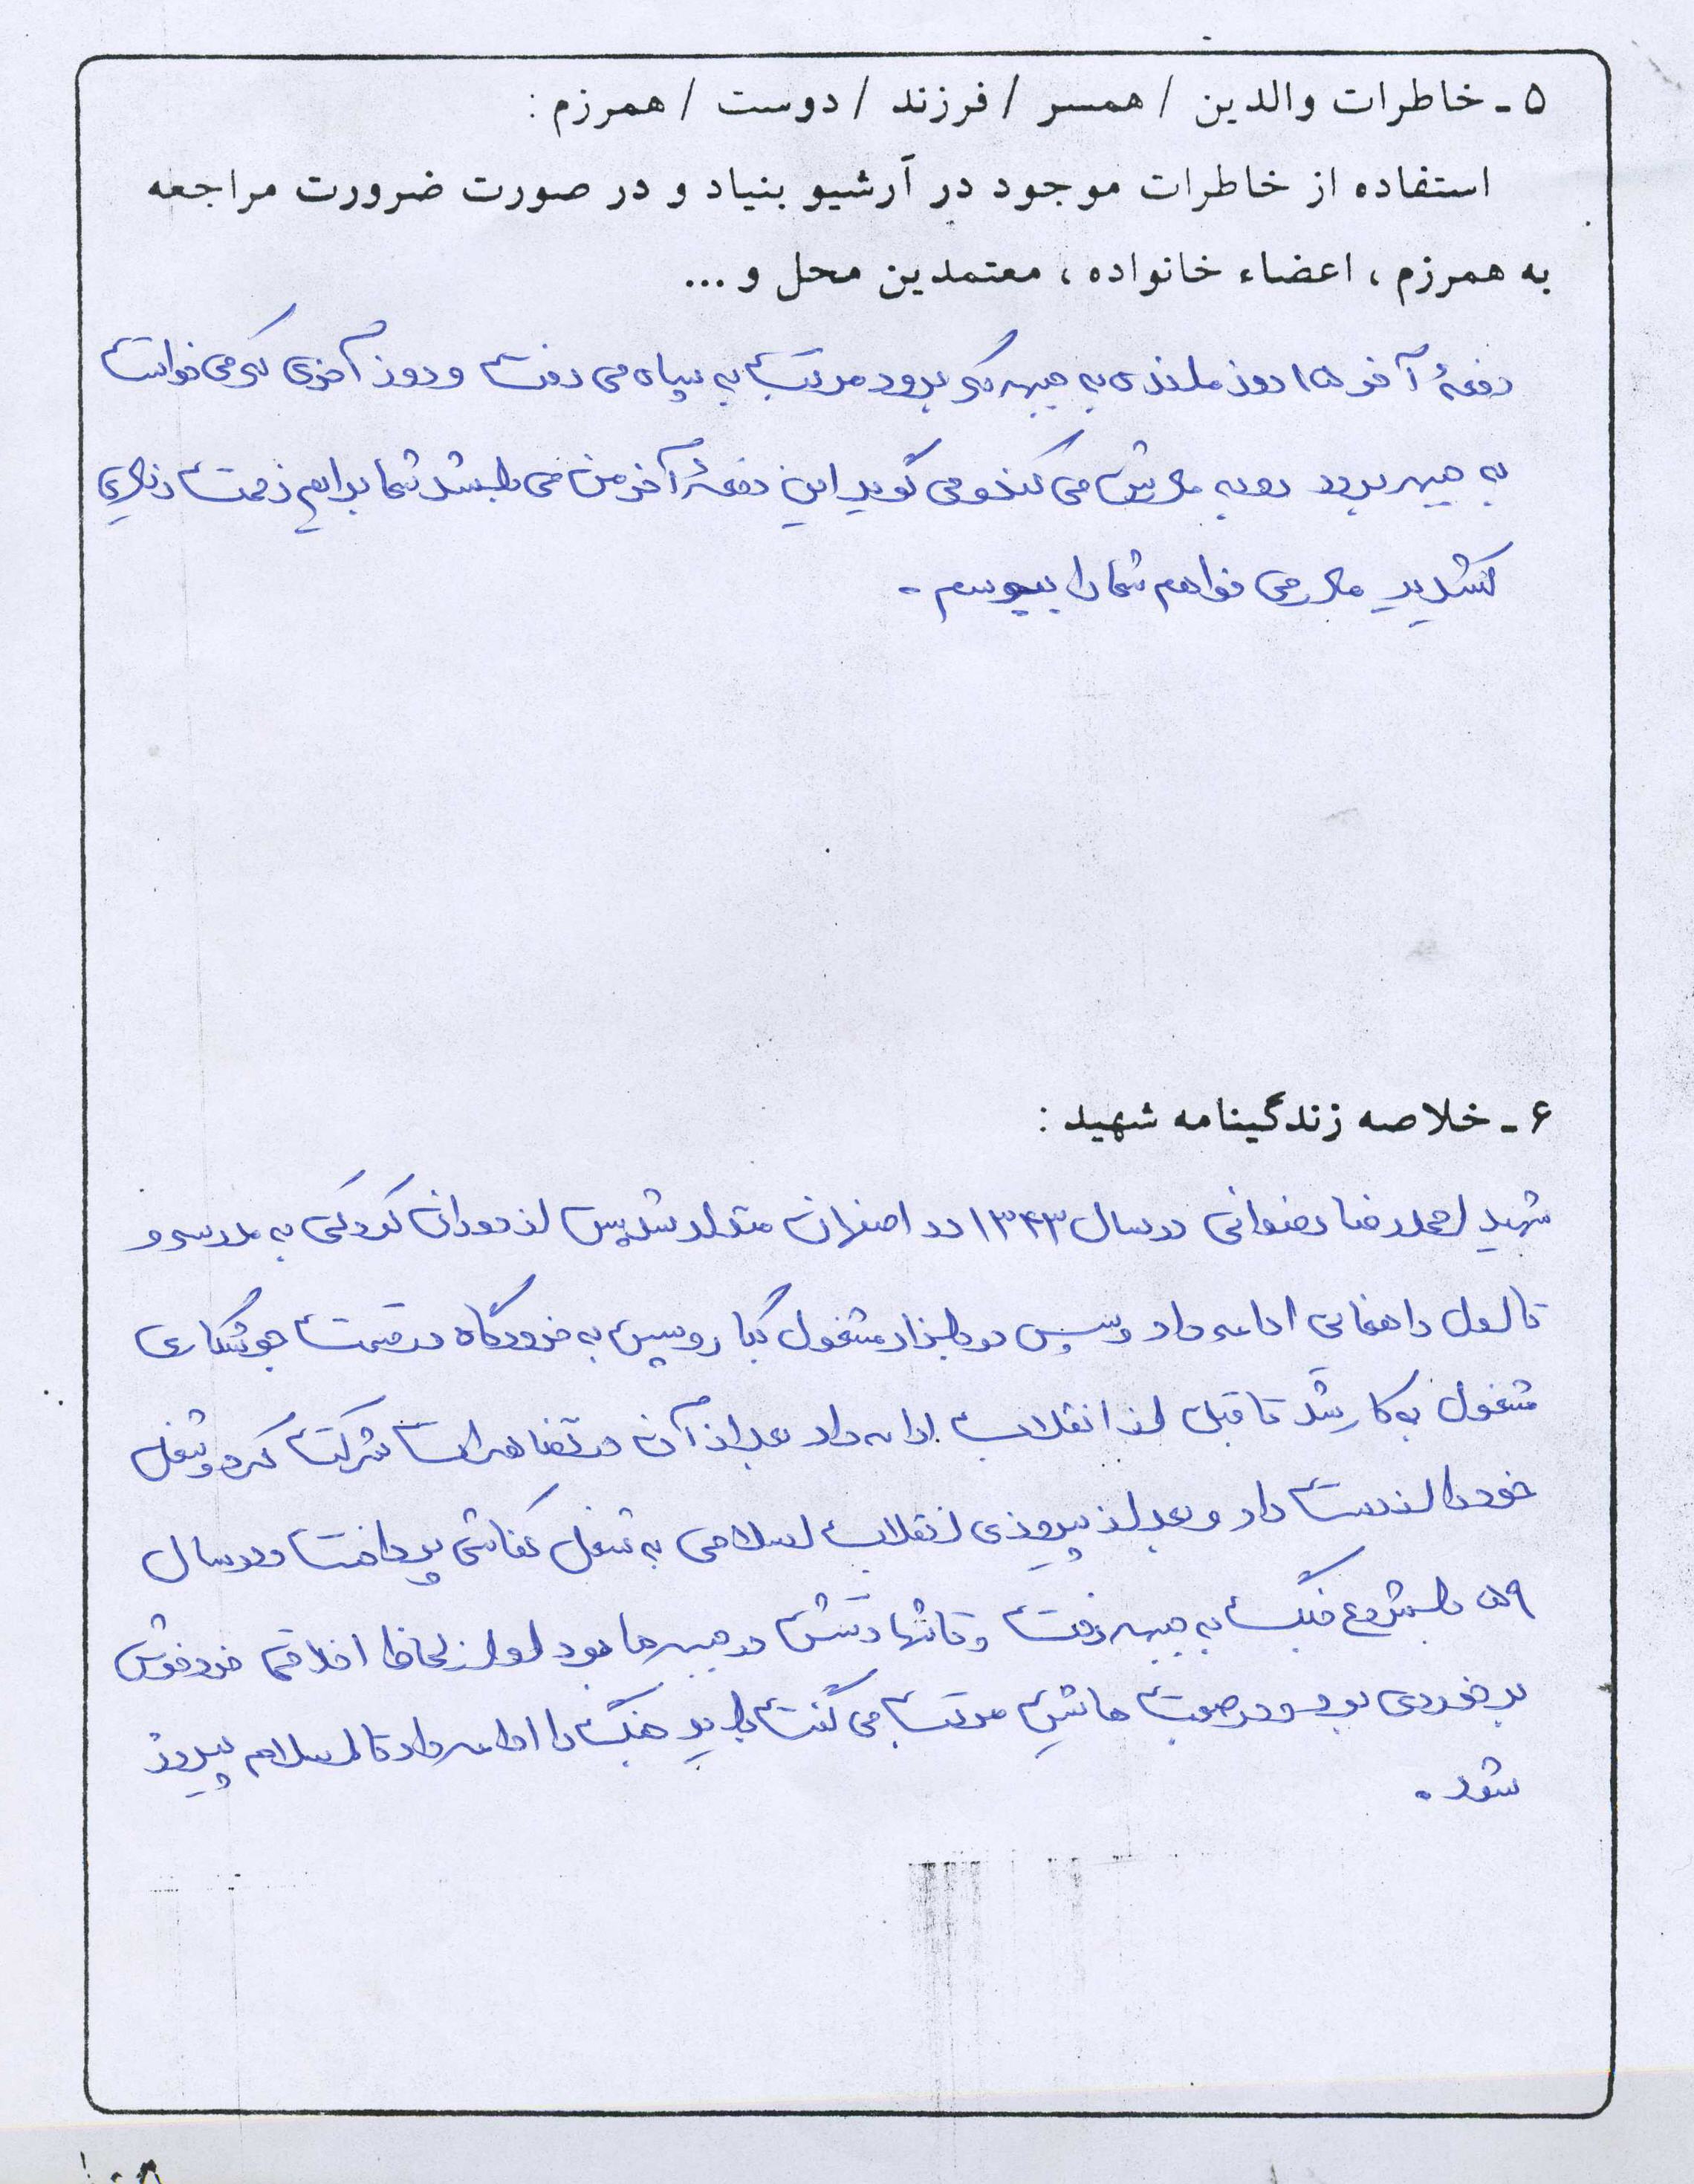 ۵ ـ خاطرات والدین / همسر / فرزند / دوست / همرزم :
استفاده از خاطرات موجود در آرشیو بنیاد و در صورت ضرورت مراجعه
به همرزم ، اعضاء خانواده ، معتمدین محل و ...
دفعهٔ آخر ۱۵ روز مانده به جبهه که برود مرتب به سپاه می رفت و روز آخری که می خواست
به جبهه برود رو به مادرش می کند و می گوید این دفعهٔ آخر من می باشد شما برایم زحمت زیادی
کشیدید مادر می خواهم شما را ببوسم .
۶ ـ خلاصه زندگینامه شهید :
شهید احمدرضا رضوانی در سال ۱۳۴۳ در اصفهان متولد شد پس از دوران کودکی به مدرسه و
تا اول راهنمایی ادامه داد و سپس در بازار مشغول بکار و سپس به فرودگاه در قسمت جوشکاری
مشغول به کار شد تا قبل از انقلاب ادامه داد بعد از آن در تظاهرات شرکت کرد و شغل
خود را از دست داد و بعد از پیروزی انقلاب اسلامی به شغل کفاشی پرداخت و در سال
۵۹ با شروع جنگ به جبهه رفت و تا شهادتش در جبهه ها بود او از لحاظ اخلاقی فرد خوش
برخوردی بود و در صحبت هایش مرتب می گفت باید جنگ را ادامه داد تا اسلام پیروز
شود .